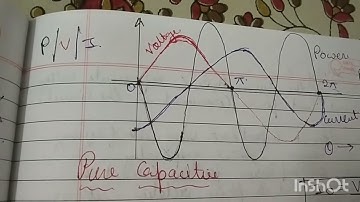 P/V/I.
Voltage
Power
0
π
2π
Current
θ →
Pure Capacitive
InShot